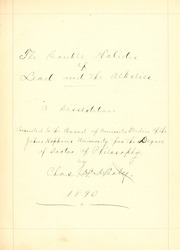 The Double Halides
of
Lead and the Alkalies
A Dissertation
Presented to the Board of University Studies of the
Johns Hopkins University for the Degree
of Doctor of Philosophy
by
Chas.
1890